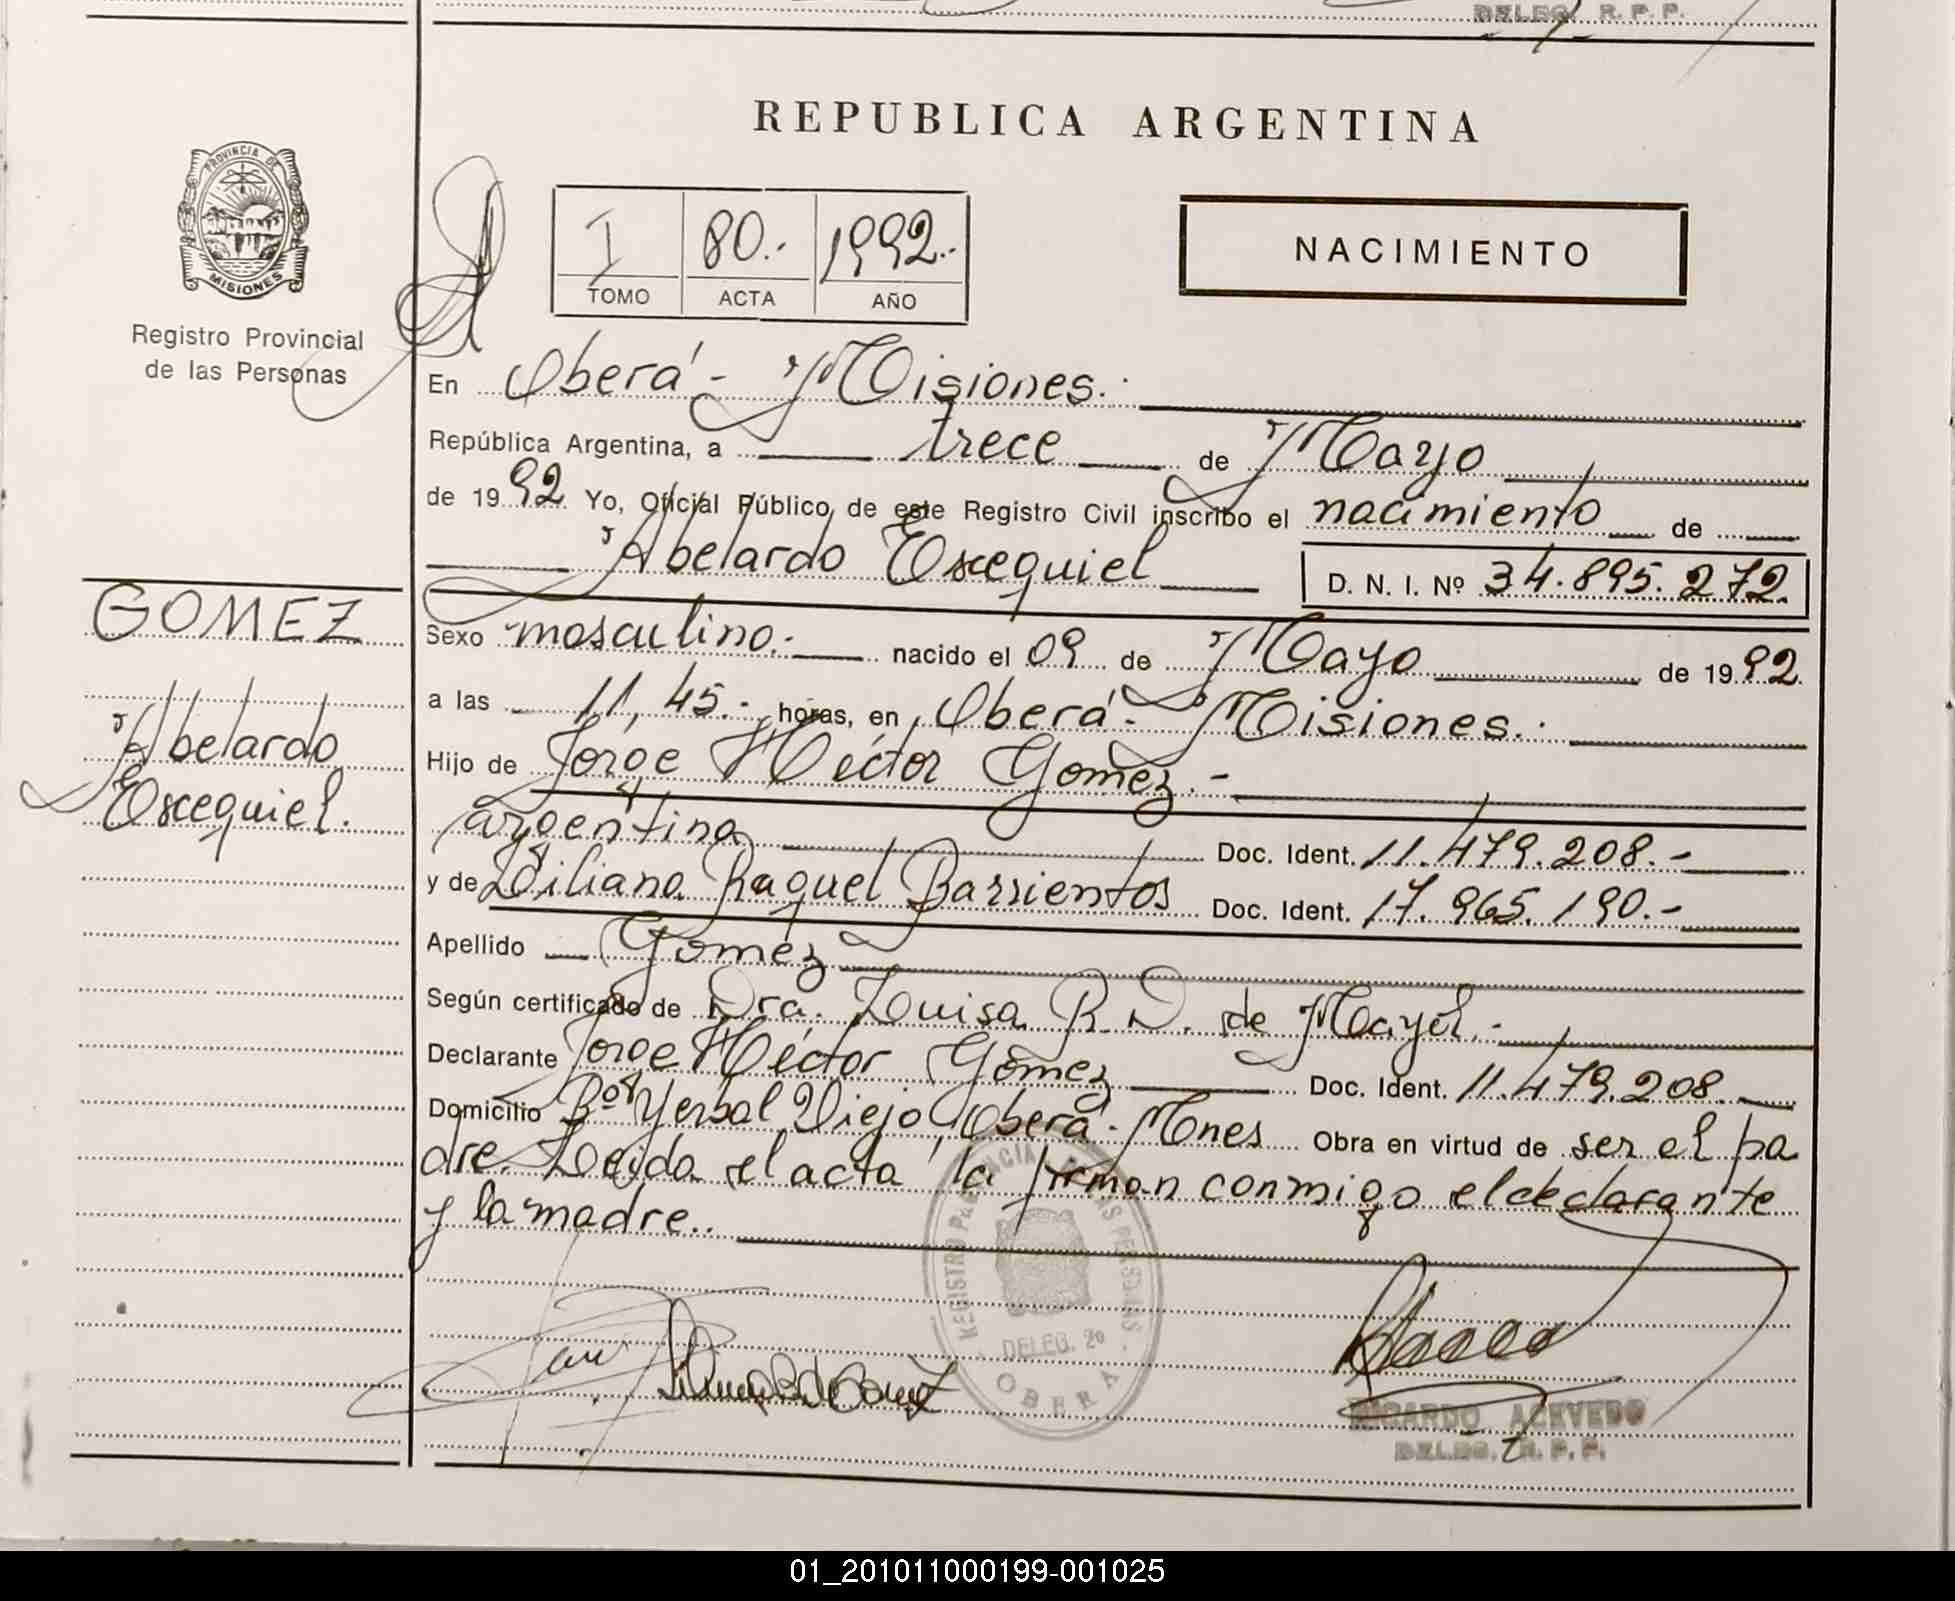 DELEG. R. P. P.
REPUBLICA ARGENTINA
PROVINCIA DE
MISIONES
Registro Provincial
de las Personas
I 80.- 1992.-
TOMO ACTA AÑO
NACIMIENTO
En Oberá - Misiones.-
República Argentina, a trece de Mayo
de 1992 Yo, Oficial Público de este Registro Civil inscribo el nacimiento de
Abelardo Exequiel D. N. I. Nº 34.895.272
GOMEZ
Abelardo
Exequiel.
Sexo masculino.- nacido el 09 de Mayo de 1992
a las 11,45.- horas, en Oberá - Misiones.-
Hijo de Jorge Héctor Gomez.-
argentina Doc. Ident. 11.479.208.-
y de Liliana Raquel Barrientos Doc. Ident. 17.965.190.-
Apellido Gomez
Según certificado de Dra. Luisa R. D. de Mayol.-
Declarante Jorge Héctor Gomez Doc. Ident. 11.479.208.
Domicilio Bº Yerbal Viejo Oberá - Mnes Obra en virtud de ser el pa
dre. Leida el acta la firman conmigo el declarante
y la madre..
REGISTRO PROVINCIAL DE LAS PERSONAS
DELEG. 2º
OBERA
RICARDO ACEVEDO
DELEG. R. P. P.
01_201011000199-001025